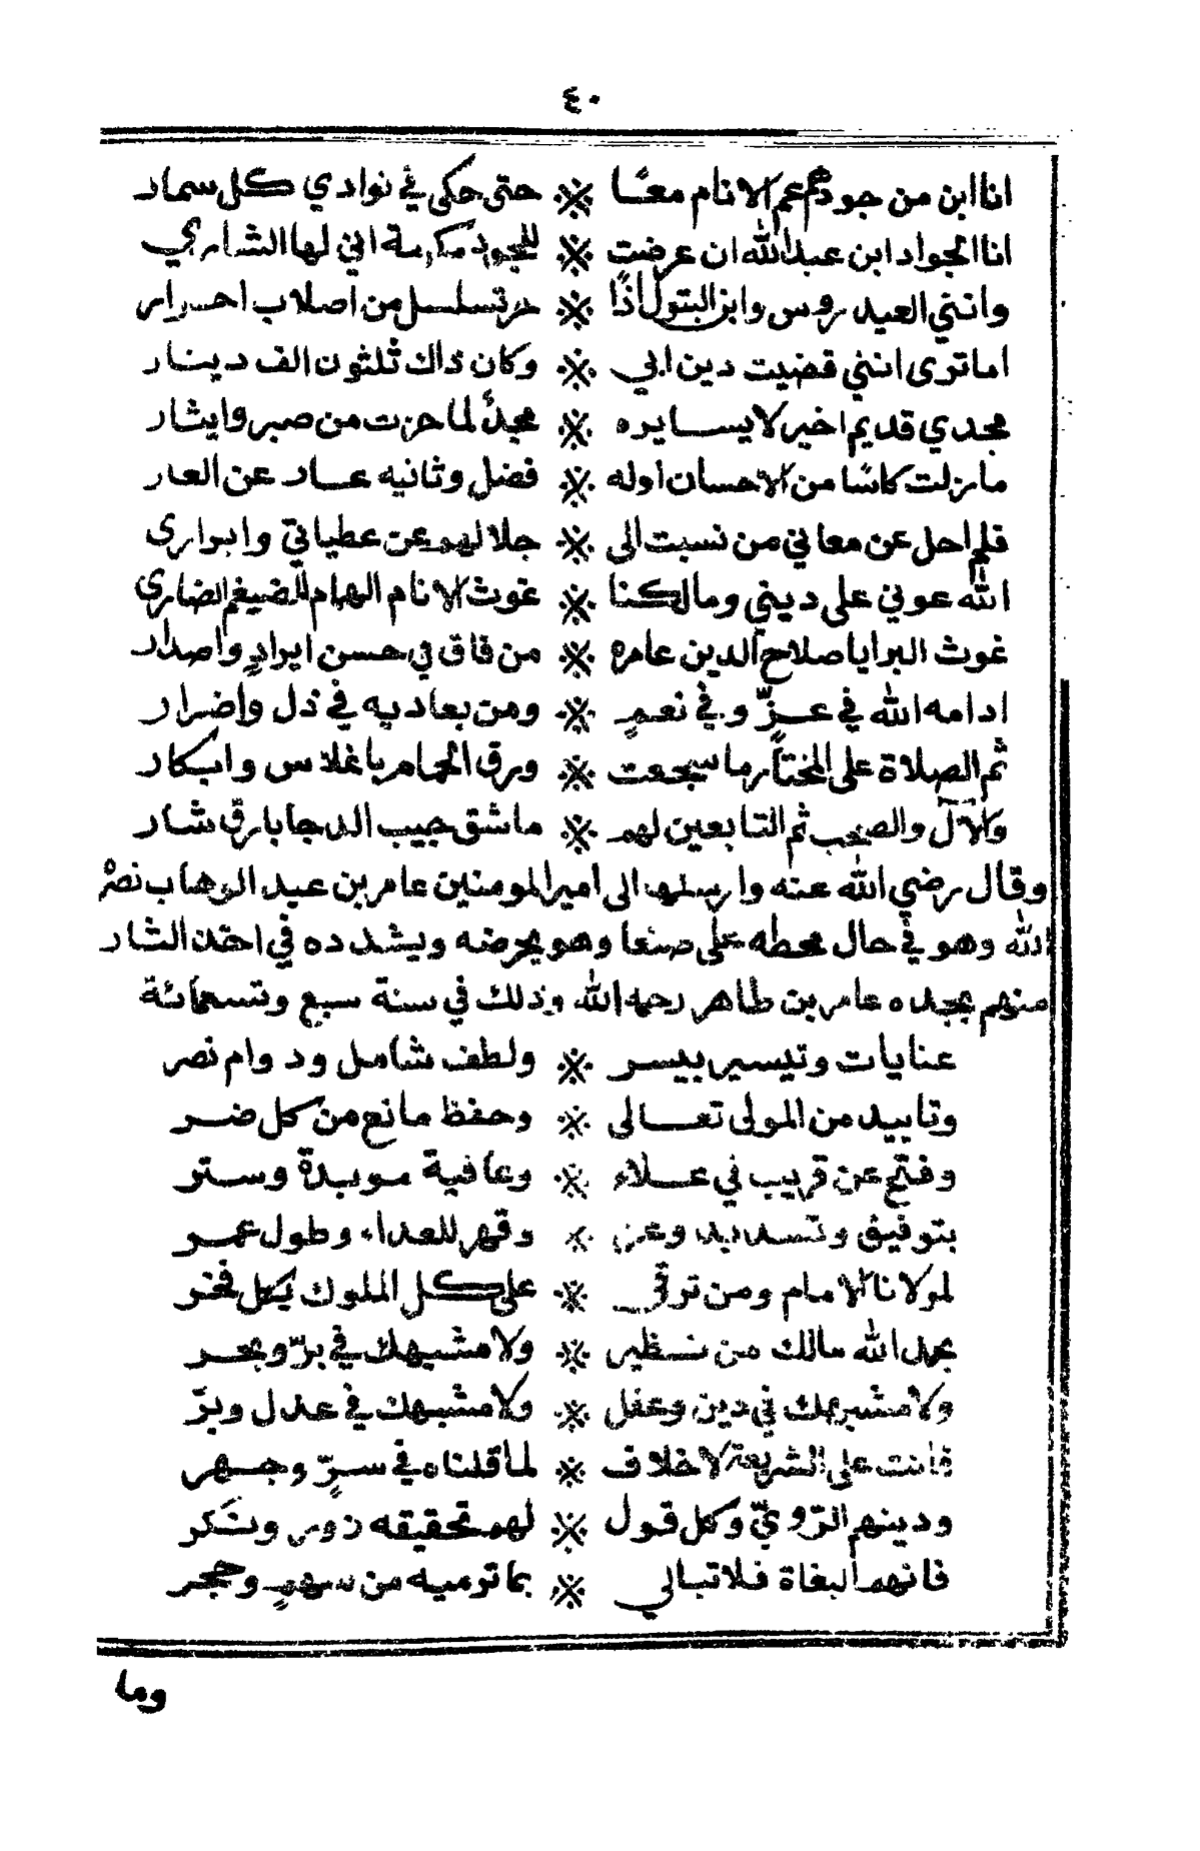 ٤٠
انا ابن من جودهم عم الانام معًا ※ حتى حكى في نوادي كل سمار
انا الجواد ابن عبدالله ان عرضت ※ للجود مكرمة اني لها الشاري
وانني العيدروس وابن البتول اذًا ※ حر تسلسل من اصلاب احرار
اما ترى انني قضيت دين ابي ※ وكان ذاك ثلثون الف دينار
مجدي قديم اخير لا يسايره ※ مجدٌ لما حزت من صبر وايثار
مازلت كاسًا من الاحسان اوله ※ فضل وثانيه عار عن العار
فلم احل عن معاني من نسبت الى ※ جلالهم عن عطياتي وابراري
الله عوني على ديني ومالكنا ※ غوث الانام الهمام الضيغم الضاري
غوث البرايا صلاح الدين عامره ※ من فاق في حسن ايرادٍ واصدار
ادامه الله في عزٍّ وفي نعمٍ ※ ومن يعاديه في ذل واضرار
ثم الصلاة على المختار ما سجعت ※ ورق الحمام باغلاس وابكار
والآل والصحب ثم التابعين لهم ※ ماشق جيب الدجا بارق شار
وقال رضي الله عنه وارسلها الى امير المومنين عامر بن عبد الوهاب نصره
الله وهو في حال محطه على صنعا وهو يحرضه ويشدده في اخذ الثار
منهم بجده عامر بن طاهر رحمه الله وذلك في سنة سبع وتسعمائة
عنايات وتيسير بيسر ※ ولطف شامل ودوام نصر
وتاييد من المولى تعالى ※ وحفظ مانع من كل ضر
وفتح عن قريب في علاء ※ وعافية موبدة وستر
بتوفيق وتسديد وعز ※ وقهر للعداء وطول عمر
لمولانا الامام ومن ترقى ※ على كل الملوك بكل فخر
بحمد الله مالك من نظير ※ ولا مشبهك في برّ وبحر
ولا مشبهك في دين وعقل ※ ولا مشبهك في عدل وبرّ
فانت على الشريعة لا خلاف ※ لما قلناه في سرٍّ وجهر
ودينهم الرّويّ وكل قول ※ لهم تحقيقه زور ونكر
فانهم البغاة فلا تبالي ※ بما ترميه من سهمٍ وحجر
وما